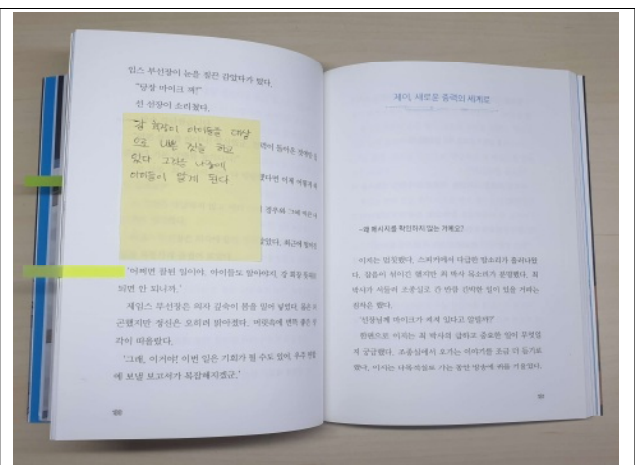 임스 부선장이 눈을 질끈 감았다가 떴다.
"당장 마이크 꺼!"
선 선장이 소리쳤다.
강 회장이 아이들을 대상
으로 나쁜 짓을 하고
있다 그것은 나중에
아이들이 알게 된다
'어쩌면 잘된 일이야. 아이들도 알아야지. 강 회장
되면 안 되니까.'
제임스 부선장은 의자 깊숙이 몸을 밀어 넣었다. 몸은
곤했지만 정신은 오히려 맑아졌다. 머릿속에 번쩍 좋은 생
각이 떠올랐다.
'그래, 이거야! 이번 일은 기회가 될 수도 있어. 우주 연합
에 보낼 보고서가 복잡해지겠군.'
제이, 새로운 중력의 세계로
-왜 메시지를 확인하지 않는 거예요?
이지는 멈칫했다. 스피커에서 다급한 말소리가 흘러나왔
다. 잡음이 섞이긴 했지만 최 박사 목소리가 분명했다. 최
박사가 서둘러 조종실로 간 만큼 긴박한 일이 있을 거라는
짐작은 했다.
'선장님께 마이크가 켜져 있다고 말할까?'
한편으로 이지는 최 박사의 급하고 중요한 일이 무엇일
지 궁금했다. 조종실에서 오가는 이야기를 조금 더 듣기로
했다. 이지는 나와 가는 동안 방송에 귀를 기울였다.